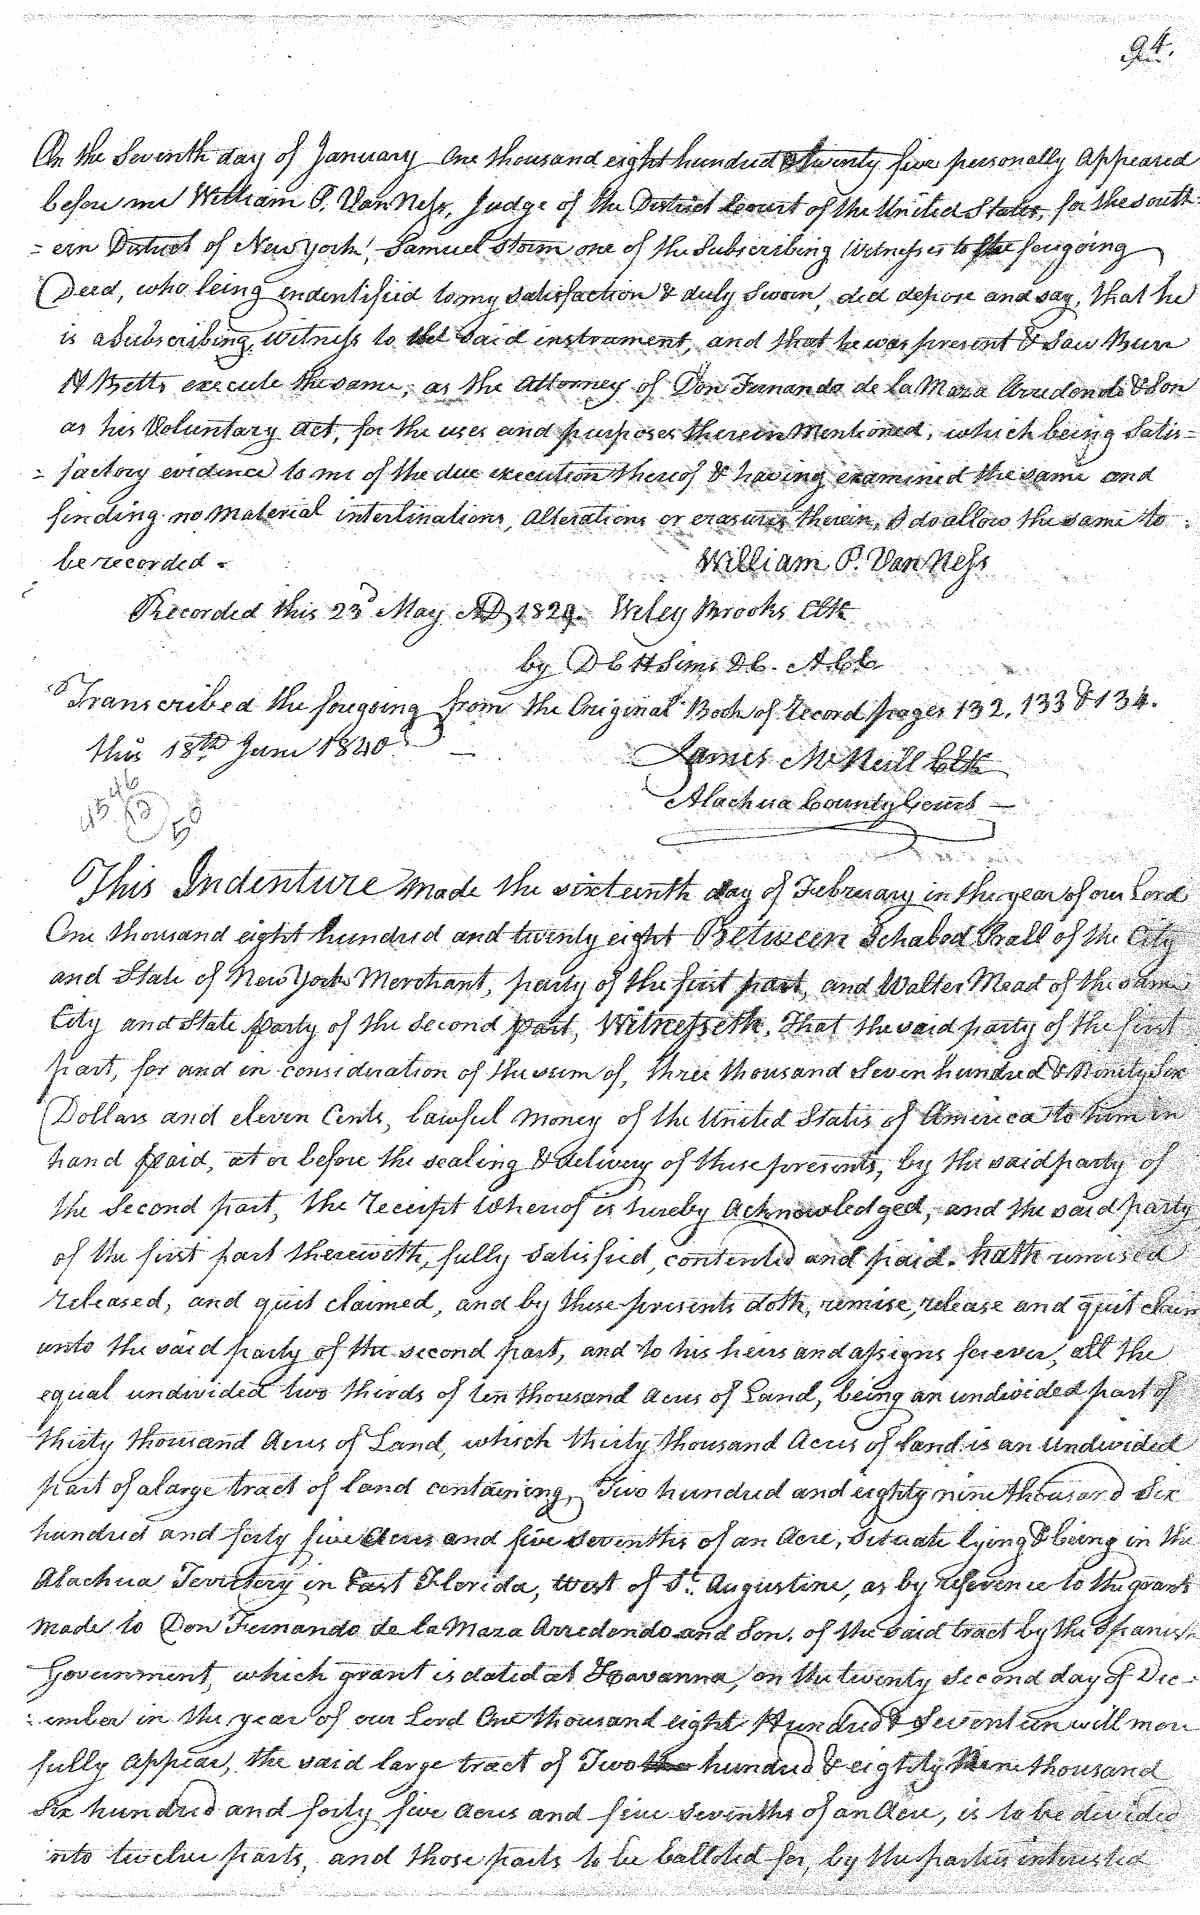 94.
On the Seventh day of January One thousand eight hundred & twenty five personally appeared
before me William P. Van Ness, Judge of the District Court of the United States, for the south-
=ern District of New York, Samuel Storm one of the Subscribing Witnesses to the foregoing
Deed, who being indentified to my satisfaction & duly sworn, did depose and say, that he
is a Subscribing witness to the said instrument, and that he was present & saw Burr
H Betts execute the same, as the Attorney of Don Fernando de la Maza Arredondo & Son
as his Voluntary act, for the uses and purposes therein Mentioned, which being Satis=
=factory evidence to me of the due execution thereof & having examined the same and
finding no Material interlinations, Alterations or erasures therein, I do allow the same to
be recorded -
William P. Van Ness
Recorded this 23d May AD 1829. Wiley Brooks Clk
by D C H Sims DC. A.C.C
Transcribed the foregoing from the Original Book of Record pages 132, 133 & 134.
this 18th June 1840
James McNeill Clk
Alachua County Court
This Indenture Made the sixteenth day of February in the year of our Lord
One thousand eight hundred and twenty eight Between Ichabod Prall of the City
and State of New York Merchant, party of the first part, and Walter Mead of the same
City and State party of the Second part, Witnesseth, That the said party of the first
part, for and in consideration of the sum of, three thousand Seven hundred & Ninety Six
Dollars and eleven Cents, lawful Money of the United States of America to him in
hand paid, at or before the sealing & delivery of these presents, by the said party of
the Second part, the receipt whereof is hereby acknowledged, and the said party
of the first part therewith, fully satisfied, contented and paid. hath remised
released, and quit claimed, and by these presents doth, remise, release and quit claim
unto the said party of the second part, and to his heirs and assigns forever, all the
equal undivided two thirds of ten thousand Acres of Land, being an undivided part of
thirty thousand Acres of Land, which thirty thousand Acres of land is an Undivided
part of a large tract of land containing, Two hundred and eighty nine thousand Six
hundred and forty five Acres and five sevenths of an Acre, situate lying & being in the
Alachua Territery in East Florida, West of St. Augustine, as by reference to the grant
made to Don Fernando de la Maza Arredondo and Son. of the said tract by the Spanish
Government, which grant is dated at Havanna, on the twenty second day of Dec=
=ember in the year of our Lord One thousand eight Hundred & Seventeen will more
fully appear, the said large tract of Two hundred & eightity Nine thousand
Six hundred and forty five Acres and five sevenths of an Acre, is to be divided
into twelve parts, and those parts to be balloted for, by the parties interested